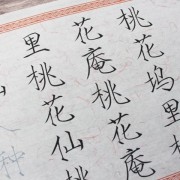 桃花坞里桃
花庵桃花庵
里桃花仙桃
种